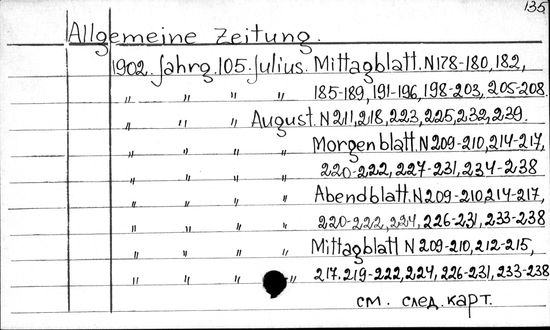 135
Allgemeine Zeitung.
1902. Jahrg. 105. Julius. Mittagblatt. N178-180, 182,
" " " " 185-189, 191-196, 198-203, 205-208.
" " " August. N211, 218, 223, 225, 232, 239.
" " " " Morgenblatt. N209-210, 214-217,
" " " " 220-222, 227-231, 234-238
" " " " Abendblatt. N209-210 214-217,
" " " " 220-222, 224, 226-231, 233-238
" " " " Mittagblatt N 209-210, 212-215,
" " " " 217. 219-222, 224, 226-231, 233-238
см. след. карт.